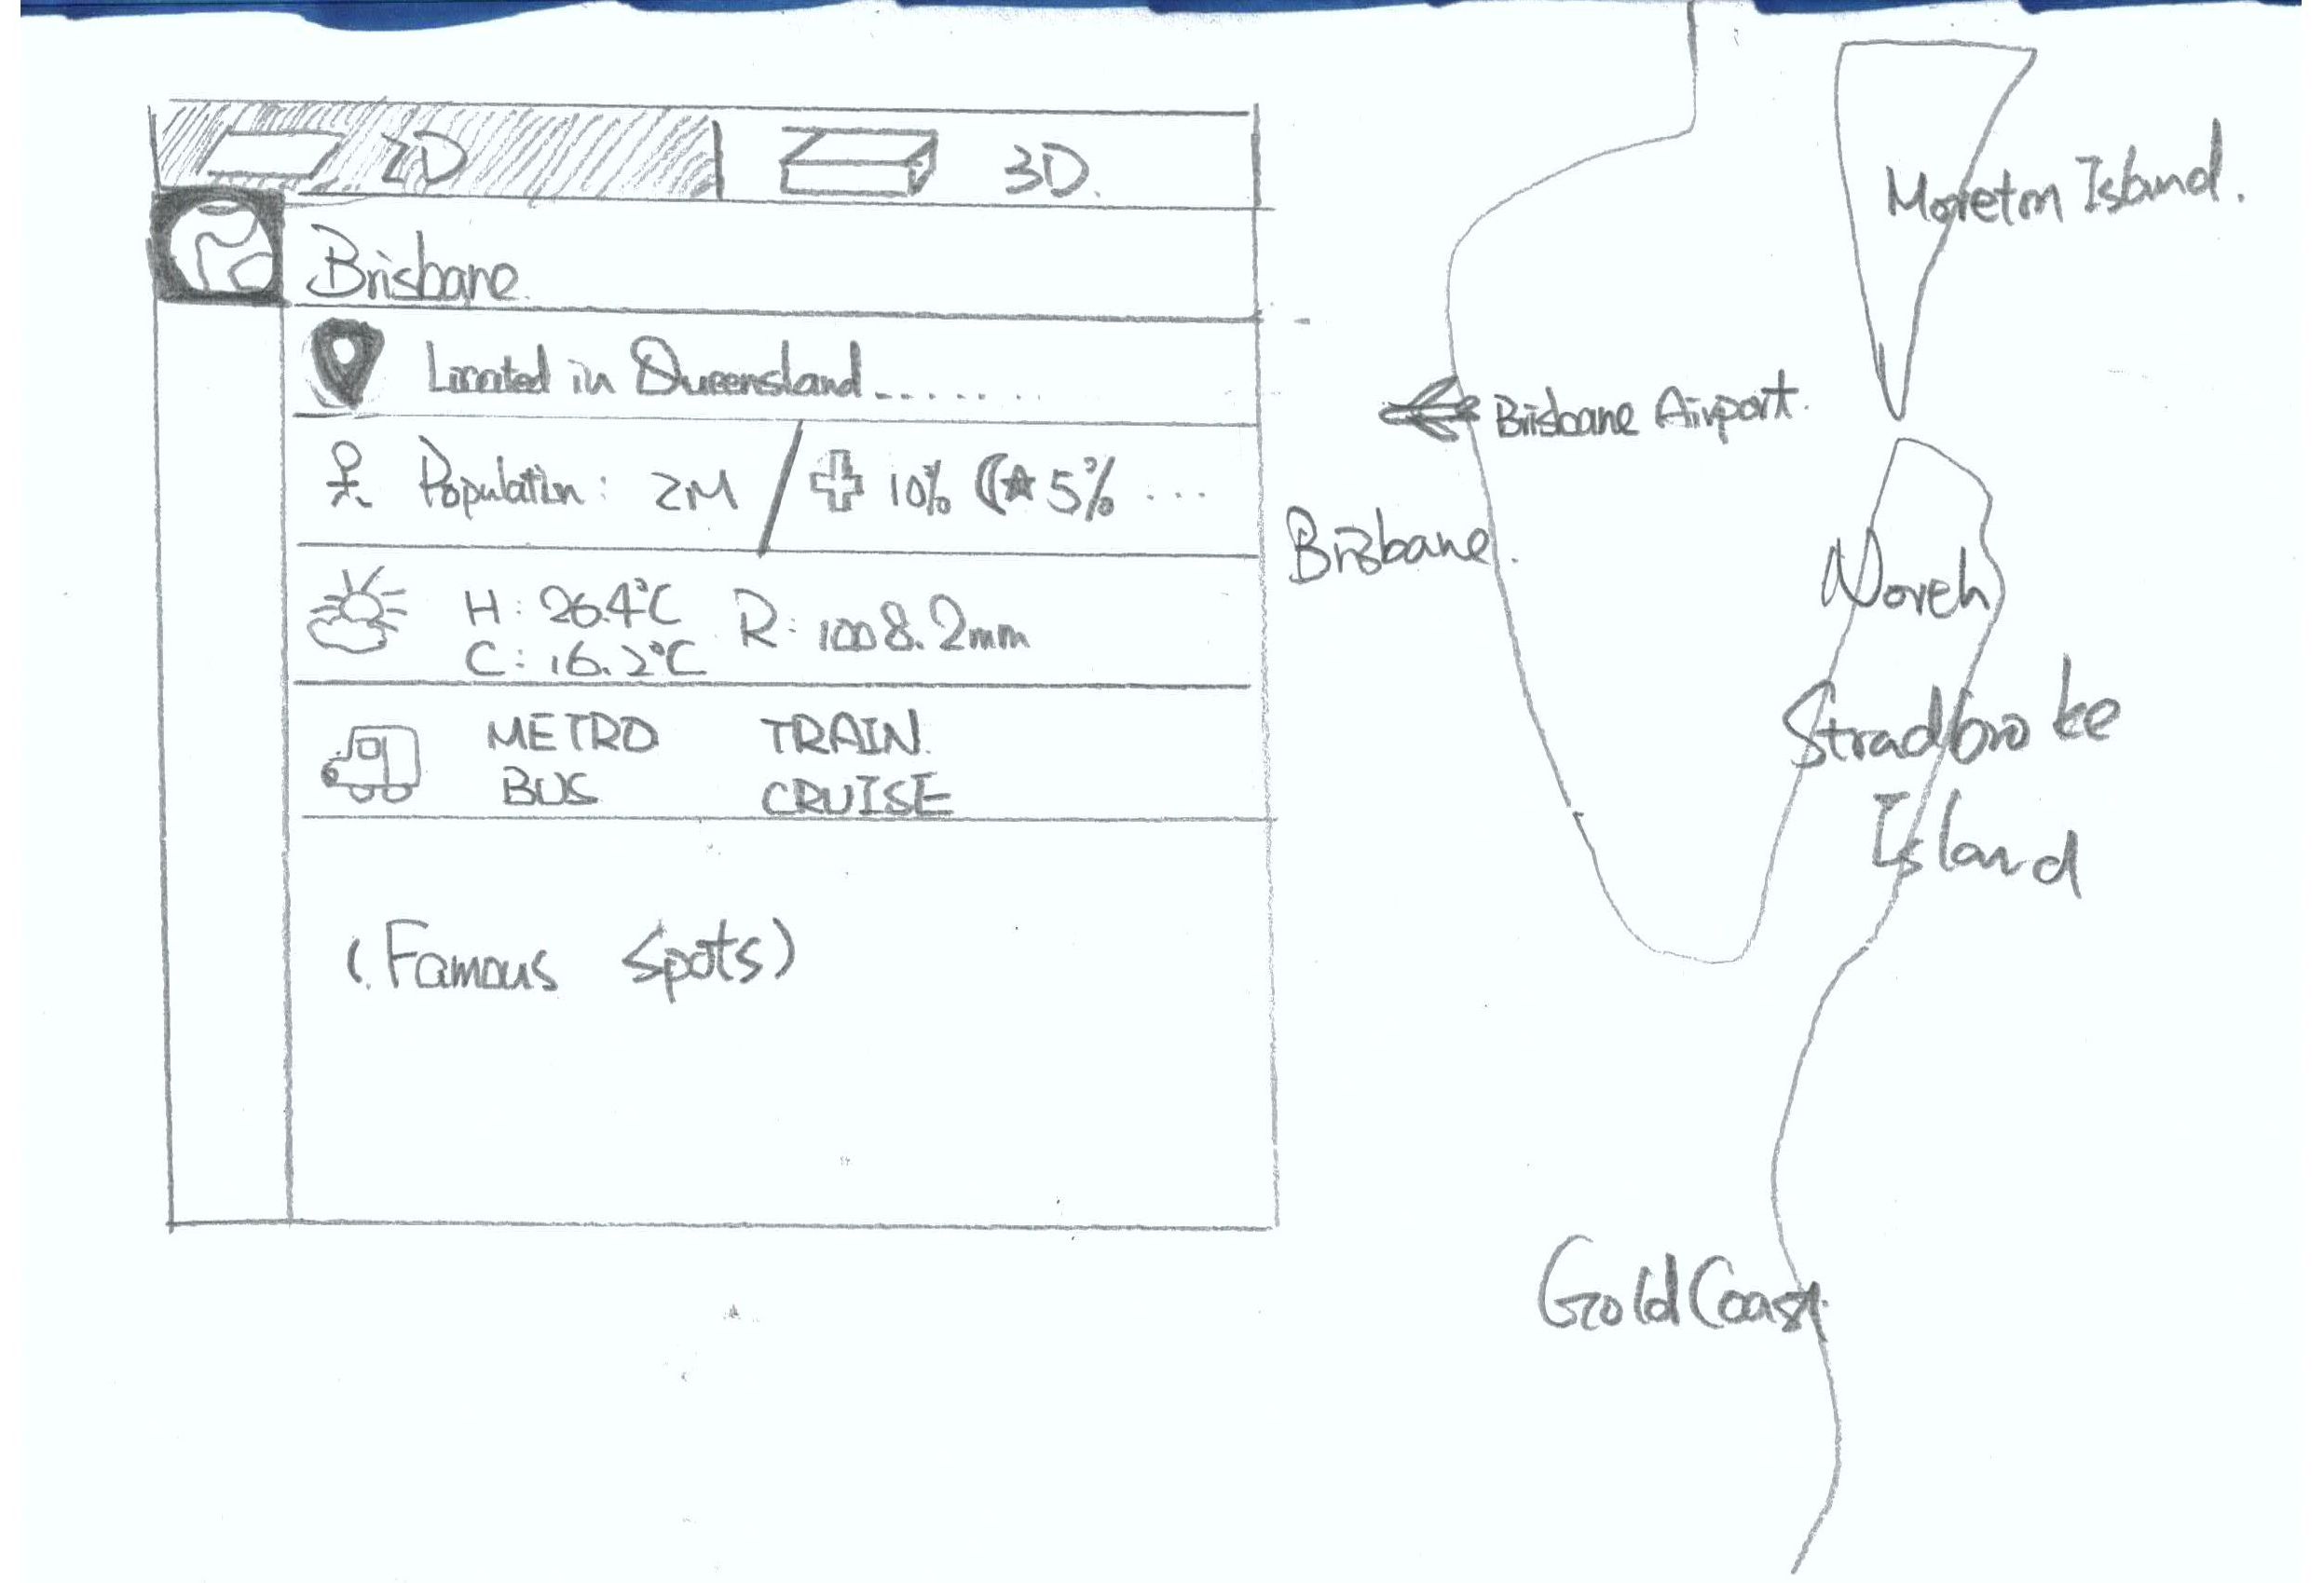 2D
3D.
Brisbane.
Located in Queensland........
Population: 2M / 10% 5% ...
H: 26.4°C
C: 16.2°C
R: 1008.2mm
METRO TRAIN.
BUS CRUISE
(Famous Spots)
Moreton Island.
Brisbane Airport.
Brisbane.
North
Stradbroke
Island
Gold Coast.